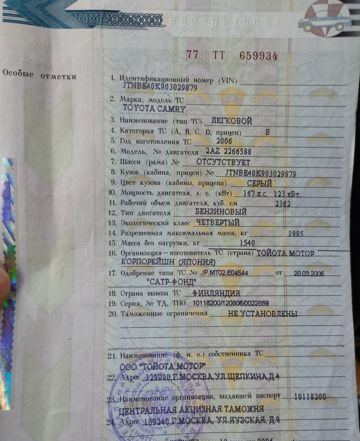 77 ТТ 659934
Особые отметки
1. Идентификационный номер (VIN)
JTNBE40K903029879
2. Марка, модель ТС
TOYOTA CAMRY
3. Наименование (тип ТС) ЛЕГКОВОЙ
4. Категория ТС (A, B, C, D, прицеп) B
5. Год изготовления ТС 2006
6. Модель, № двигателя 2AZ 2266588
7. Шасси (рама) № ОТСУТСТВУЕТ
8. Кузов (кабина, прицеп) № JTNBE40K903029879
9. Цвет кузова (кабины, прицепа) СЕРЫЙ
10. Мощность двигателя, л. с. (кВт) 167 л.с. 123 кВт
11. Рабочий объем двигателя, куб. см 2362
12. Тип двигателя БЕНЗИНОВЫЙ
13. Экологический класс ЧЕТВЕРТЫЙ
14. Разрешенная максимальная масса, кг 1985
15. Масса без нагрузки, кг 1540
16. Организация–изготовитель ТС (страна) ТОЙОТА МОТОР
КОРПОРЕЙШН (ЯПОНИЯ)
17. Одобрение типа ТС № JP.MT02.E04544 от 20.03.2006
"САТР-ФОНД"
18. Страна вывоза ТС ФИНЛЯНДИЯ
19. Серия, № ТД, ТПО 10118200/120806/0022669
20. Таможенные ограничения НЕ УСТАНОВЛЕНЫ
21. Наименование (ф. и. о.) собственника ТС
ООО "ТОЙОТА МОТОР"
22. Адрес 129090, Г.МОСКВА, УЛ.ЩЕПКИНА, Д.4
23. Наименование организации, выдавшей паспорт 10118200
ЦЕНТРАЛЬНАЯ АКЦИЗНАЯ ТАМОЖНЯ
24. Адрес 109240, Г.МОСКВА, УЛ ЯУЗСКАЯ, Д.8